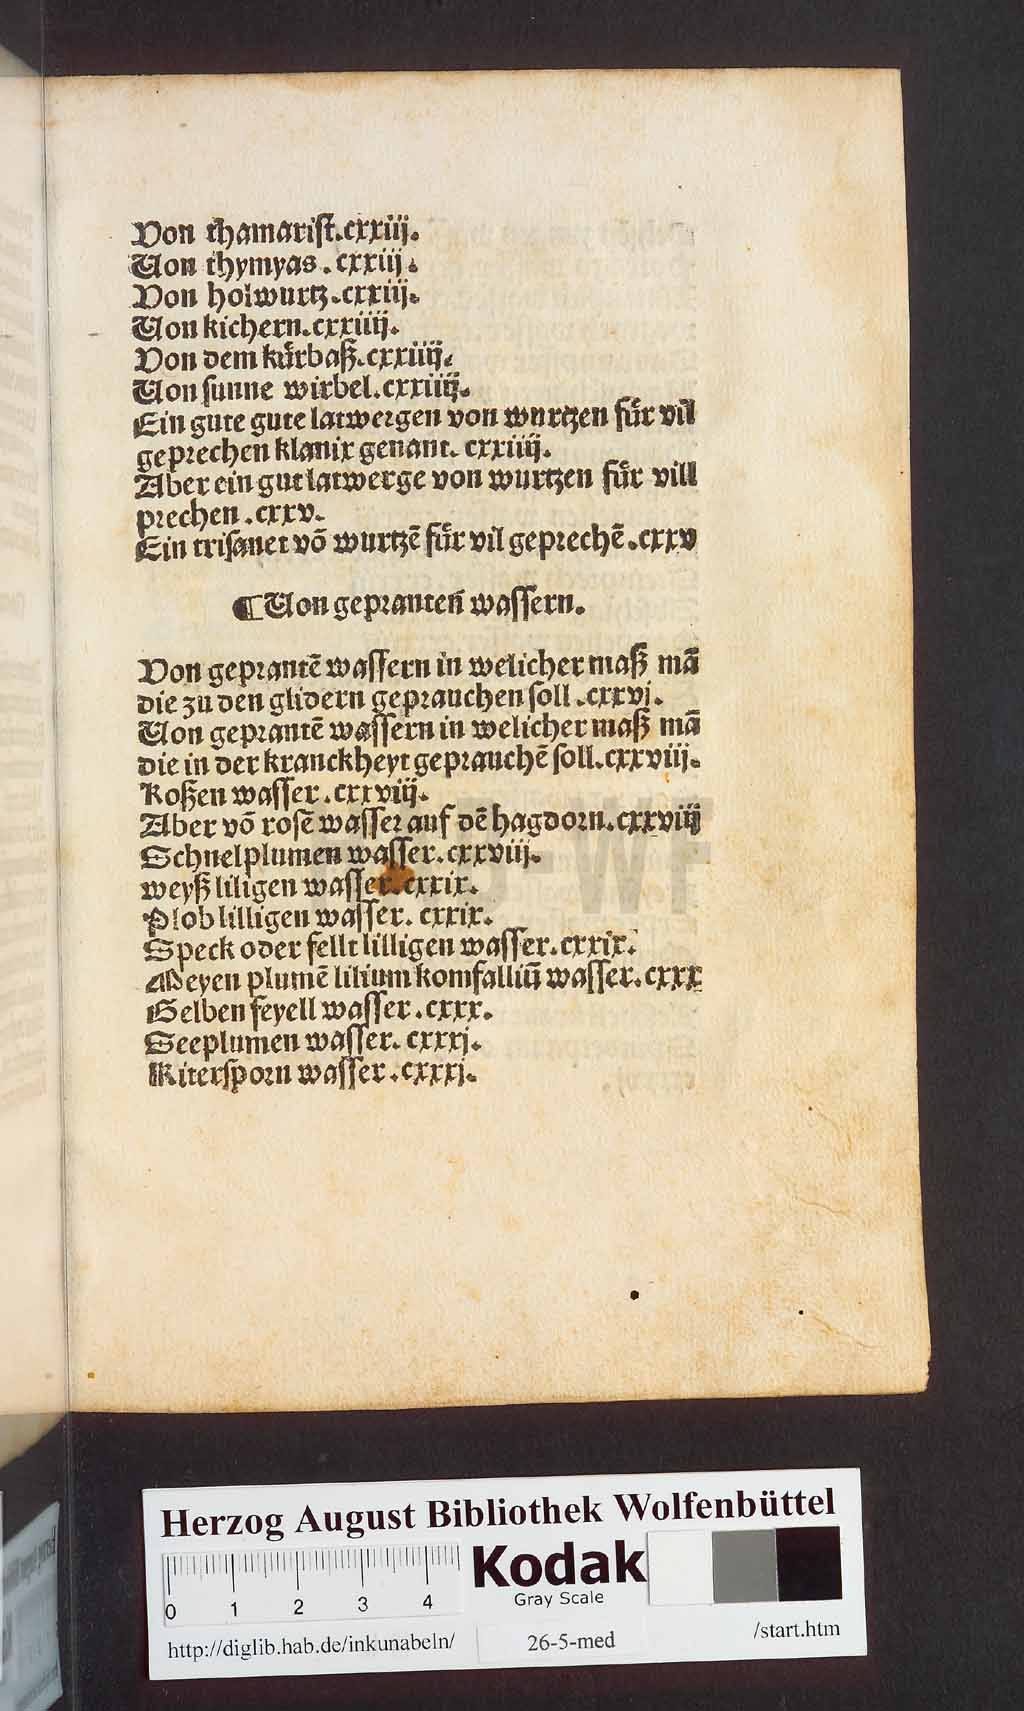 Von thamarist.cxxiij.
Von thymyas.cxxiij.
Von holwurtz.cxxiij.
Von kichern.cxxiiij.
Von dem kuͤrbaß.cxxiiij.
Von sunne wirbel.cxxiiij.
Ein gute gute latwergen von wurtzen fuͤr vil
geprechen klanix genant. cxxiiij.
Aber ein gut latwerge von wurtzen fuͤr vill
prechen.cxxv.
Ein trisanet võ wurtzẽ fuͤr vil geprechẽ.cxxv
¶Von gepranteñ wassern.
Von geprantẽ wassern in welicher maß mã
die zu den glidern geprauchen soll.cxxvj.
Von geprantẽ wassern in welicher maß mã
die in der kranckheyt geprauchẽ soll.cxxviij.
Roßen wasser.cxxviij.
Aber võ rosẽ wasser auf dẽ hagdorn.cxxviij
Schnelplumen wasser.cxxviij.
weyß liligen wasser.cxxix.
Plob lilligen wasser. cxxix.
Speck oder fellt lilligen wasser.cxxix.
Meyen plumẽ lilium komfalliũ wasser.cxxx
Gelben feyell wasser.cxxx.
Seeplumen wasser. cxxxj.
Ritersporn wasser.cxxxj.
Herzog August Bibliothek Wolfenbüttel
0 1 2 3 4
Kodak
Gray Scale
http://diglib.hab.de/inkunabeln/ 26-5-med /start.htm